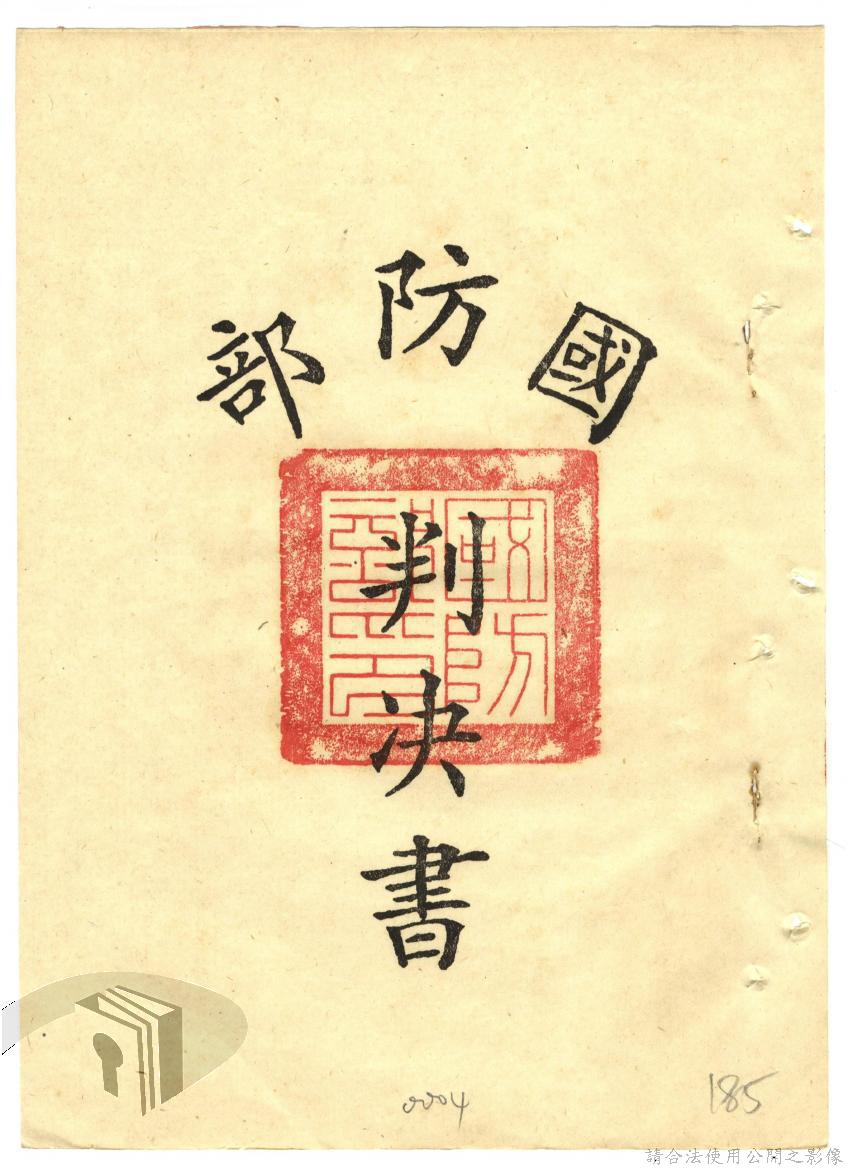 國防部
判決書
0004
185
請合法使用公開之影像